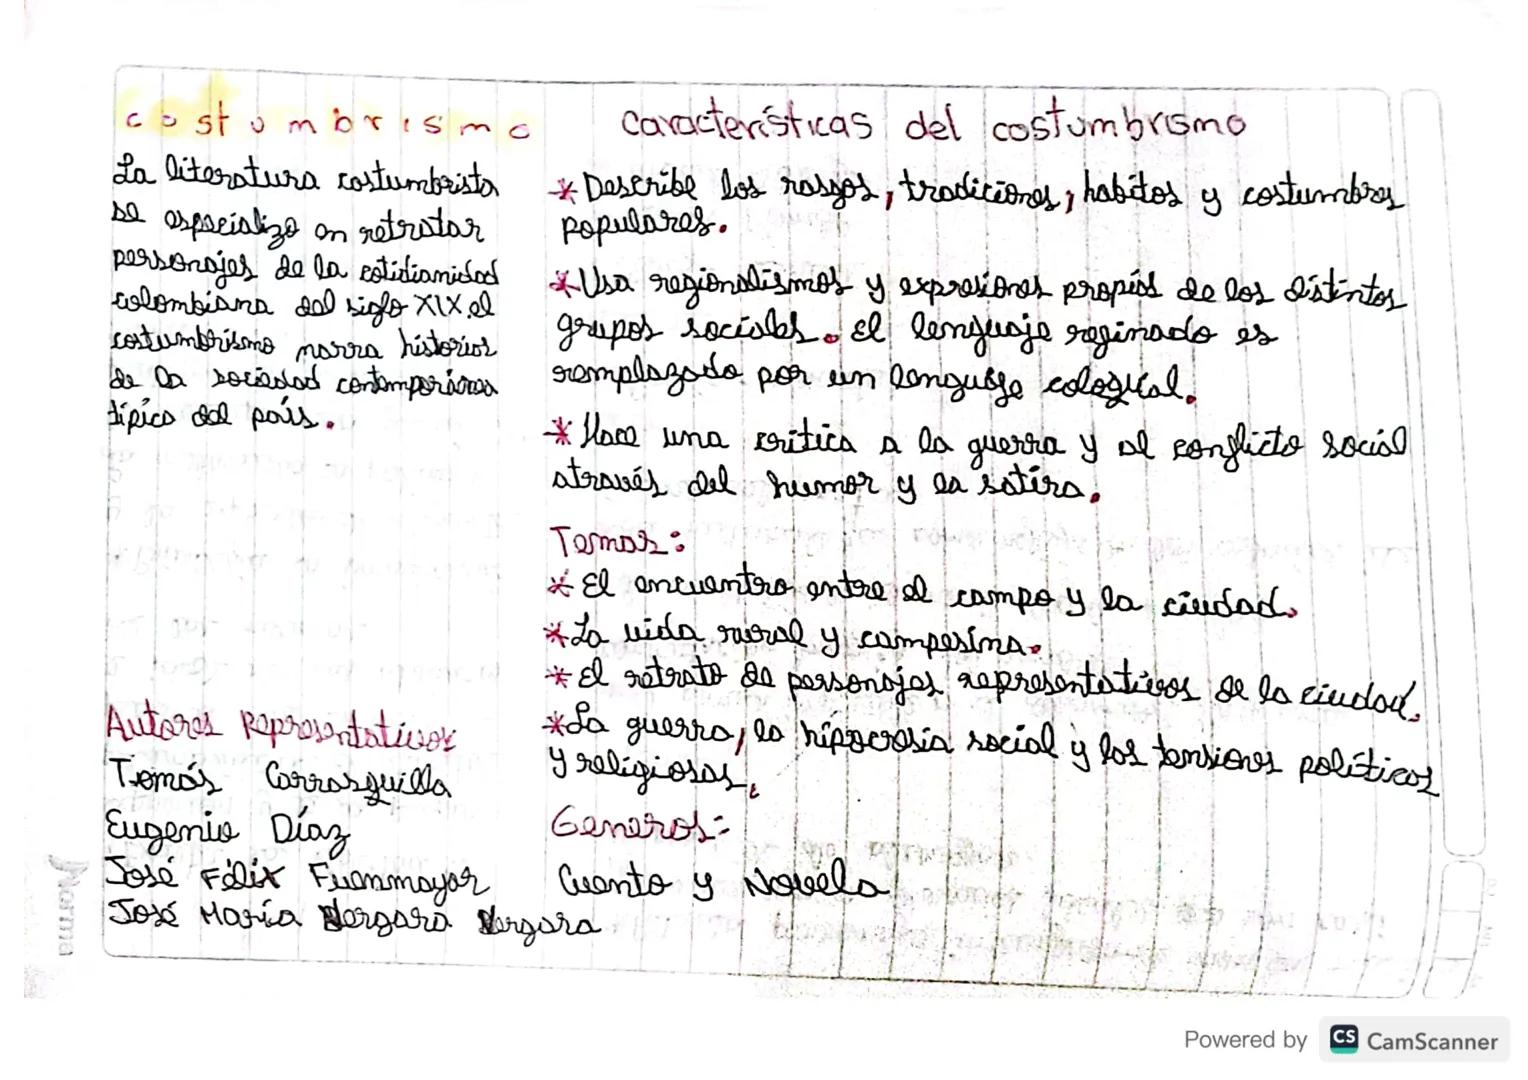 costumbrismo
La literatura costumbrista
se especializo en retratar
personajes de la cotidianidad
colombiana del siglo XIX, el
costumbrismo narra historias
de la sociedad contemporánea
típica del país.
Autores Representativos
Tomás Carrasquilla
Eugenio Díaz
José Félix Fuenmayor
José María Vergara Vergara
características del costumbrismo
* Describe los rasgos, tradiciones, habitos y costumbres
populares.
* Usa regionalismos y expresiones propias de los distintos
grupos sociales. El lenguaje reginado es
remplazado por un lenguaje cologial.
* Hace una critica a la guerra y al conflicto social
através del humor y la satira.
Temas:
* El encuentro entre el campo y la ciudad.
* La vida rural y campesina.
* El retrato de personajes representativos de la ciudad.
* La guerra, la hipocresia social y las tensiones políticas
y religiosas.
Generos:
Cuento y Novela
Norma
Powered by CS CamScanner